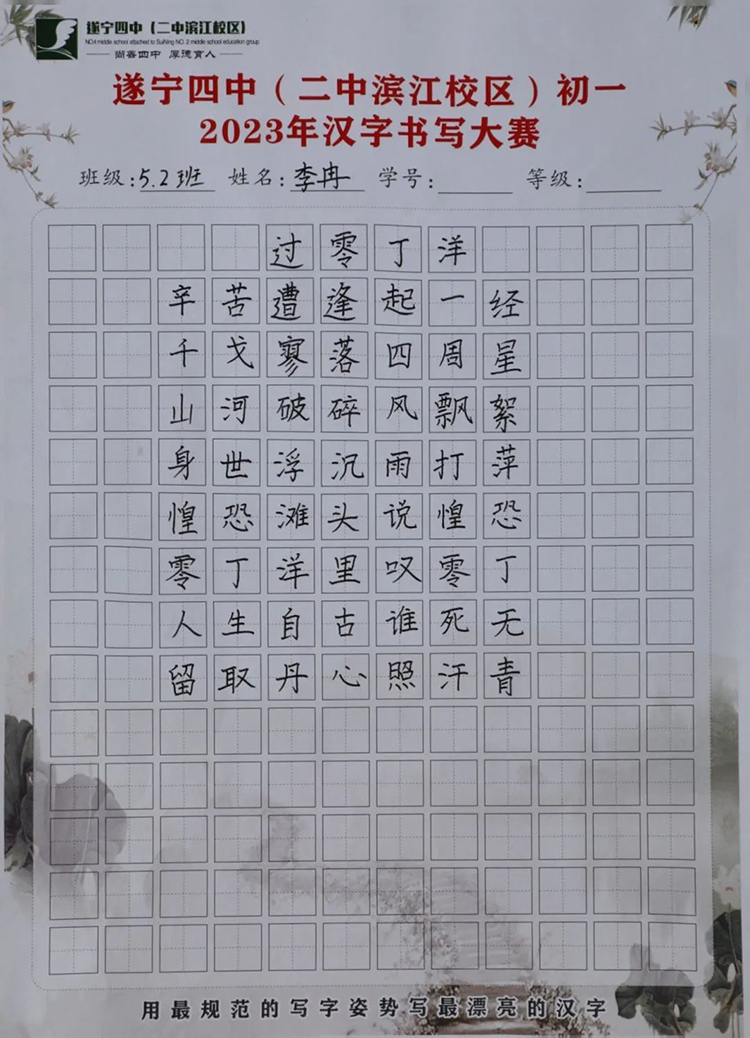 遂宁四中（二中滨江校区）
NO.4 middle school attached to SuiNing NO. 2 middle school education group
尚善四中 厚德育人
遂宁四中（二中滨江校区）初一
2023年汉字书写大赛
班级:5.2班 姓名:李冉 学号: 等级:
过零丁洋
辛苦遭逢起一经
千戈寥落四周星
山河破碎风飘絮
身世浮沉雨打萍
惶恐滩头说惶恐
零丁洋里叹零丁
人生自古谁死无
留取丹心照汗青
用最规范的写字姿势写最漂亮的汉字